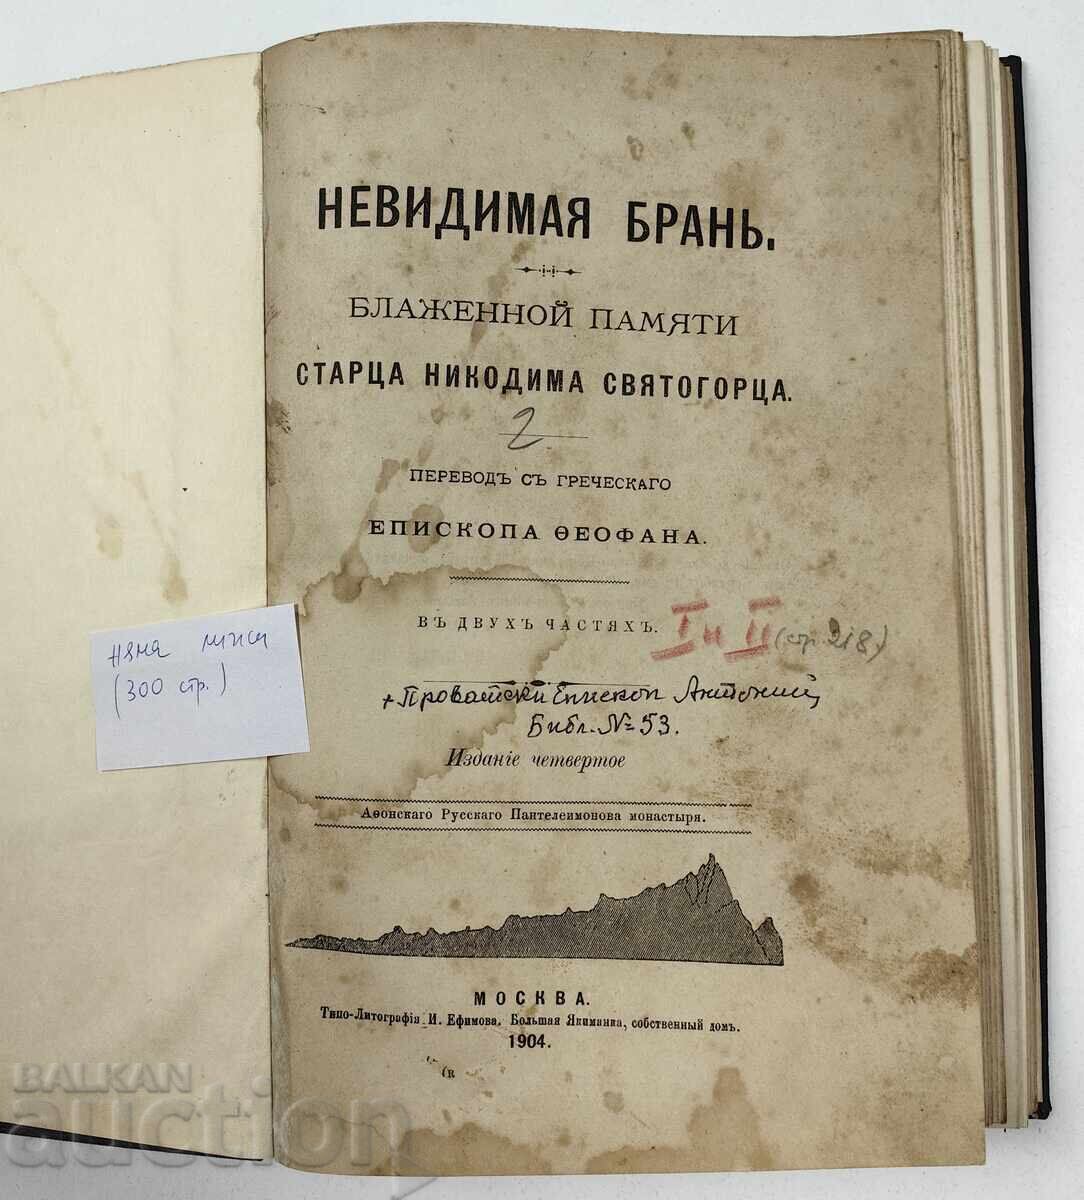 НЕВИДИМАЯ БРАНЬ.
БЛАЖЕННОЙ ПАМЯТИ
СТАРЦА НИКОДИМА СВЯТОГОРЦА.
2
ПЕРЕВОДЪ СЪ ГРЕЧЕСКАГО
ЕПИСКОПА ѲЕОФАНА.
ВЪ ДВУХЪ ЧАСТЯХЪ. I и II (стр. 218)
+ Проватски Епископ Антоний
Библ. № 53.
Изданіе четвертое
Аѳонскаго Русскаго Пантелеимонова монастыря.
МОСКВА.
Типо-Литографія И. Ефимова. Большая Якиманка, собственный домъ.
1904.
няма
(300 стр.)
BALKAN
auction